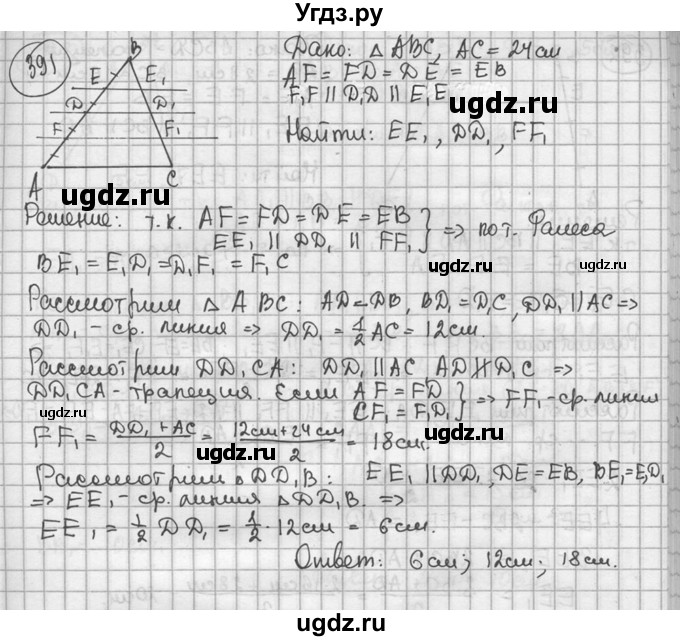 Угдз.ру
391
Дано: △ ABC, AC = 24 см
AF = FD = DE = EB
F₁F || D₁D || E₁E
ugdz.ru
Найти: EE₁, DD₁, FF₁
B
E E₁
D D₁
F F₁
A C
ugdz.ru
Решение: т.к. AF = FD = DE = EB
EE₁ || DD₁ || FF₁ } => по т. Фалеса
BE₁ = E₁D₁ = D₁F₁ = F₁C
ugdz.ru
Рассмотрим △ ABC: AD = DB, BD₁ = D₁C, DD₁ || AC =>
DD₁ - ср. линия => DD₁ = 1/2 AC = 12 см.
ugdz.ru
Рассмотрим DD₁CA: DD₁ || AC, AD ∦ D₁C =>
DD₁CA - трапеция. Если AF = FD
CF₁ = F₁D₁ } => FF₁ - ср. линия
ugdz.ru
FF₁ = (DD₁ + AC)/2 = (12 см + 24 см)/2 = 18 см.
ugdz.ru
Рассмотрим △ DD₁B: EE₁ || DD₁, DE = EB, BE₁ = ED₁
=> EE₁ - ср. линия △ DD₁B. =>
ugdz.ru
EE₁ = 1/2 DD₁ = 1/2 · 12 см = 6 см.
Ответ: 6 см; 12 см; 18 см.
ugdz.ru
ugdz.ru